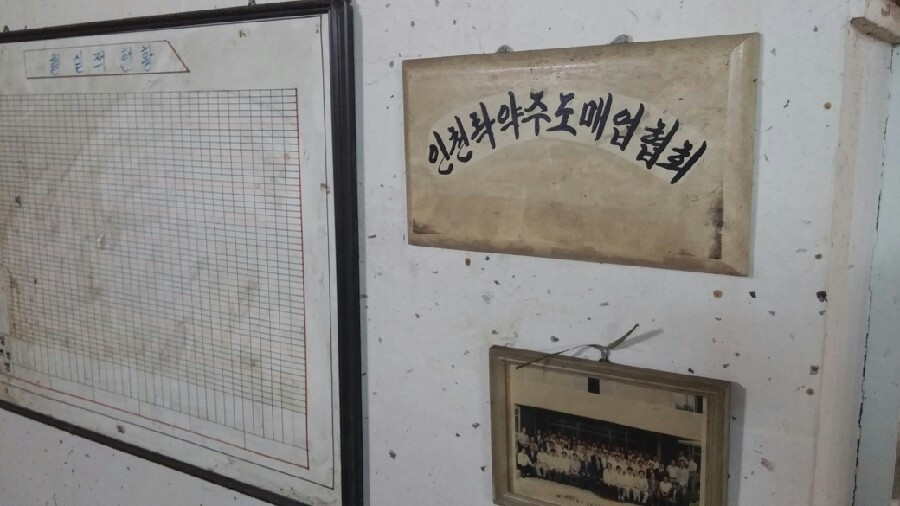 월실적현황
인천탁약주도매업협회